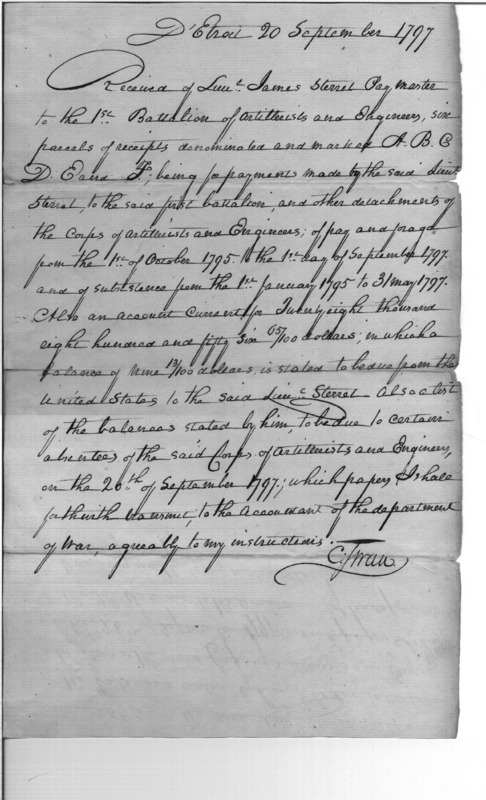 D'Etroit 20 September 1797
Received of Lieut. James Sterret Pay master
to the 1st Battalion of Artillerists and Engineers, six
parcels of receipts denominated and marked A. B. C
D. E and F; being for payments made by the said Lieut
Sterret, to the said first battalion, and other detachements of
the Corps of Artillerists and Engineers; of pay and forage
from the 1st of October 1795. to the 1st day of September 1797.
and of subsistence from the 1st January 1795 to 31 May 1797.
Also an account Current for Twenty eight thousand
eight hundred and fifty six 65/100 dollars; in which a
balance of nine 13/100 dollars, is stated to be due from the
United States to the said Lieut. Sterret. Also a list
of the balances stated by him, to be due to certain
absentees of the said Corps of Artillerists and Engineers,
on the 20th of September 1797; which papers I shall
forthwith transmit, to the Accountant of the department
of War, agreeably to my instructions.
C: Swan